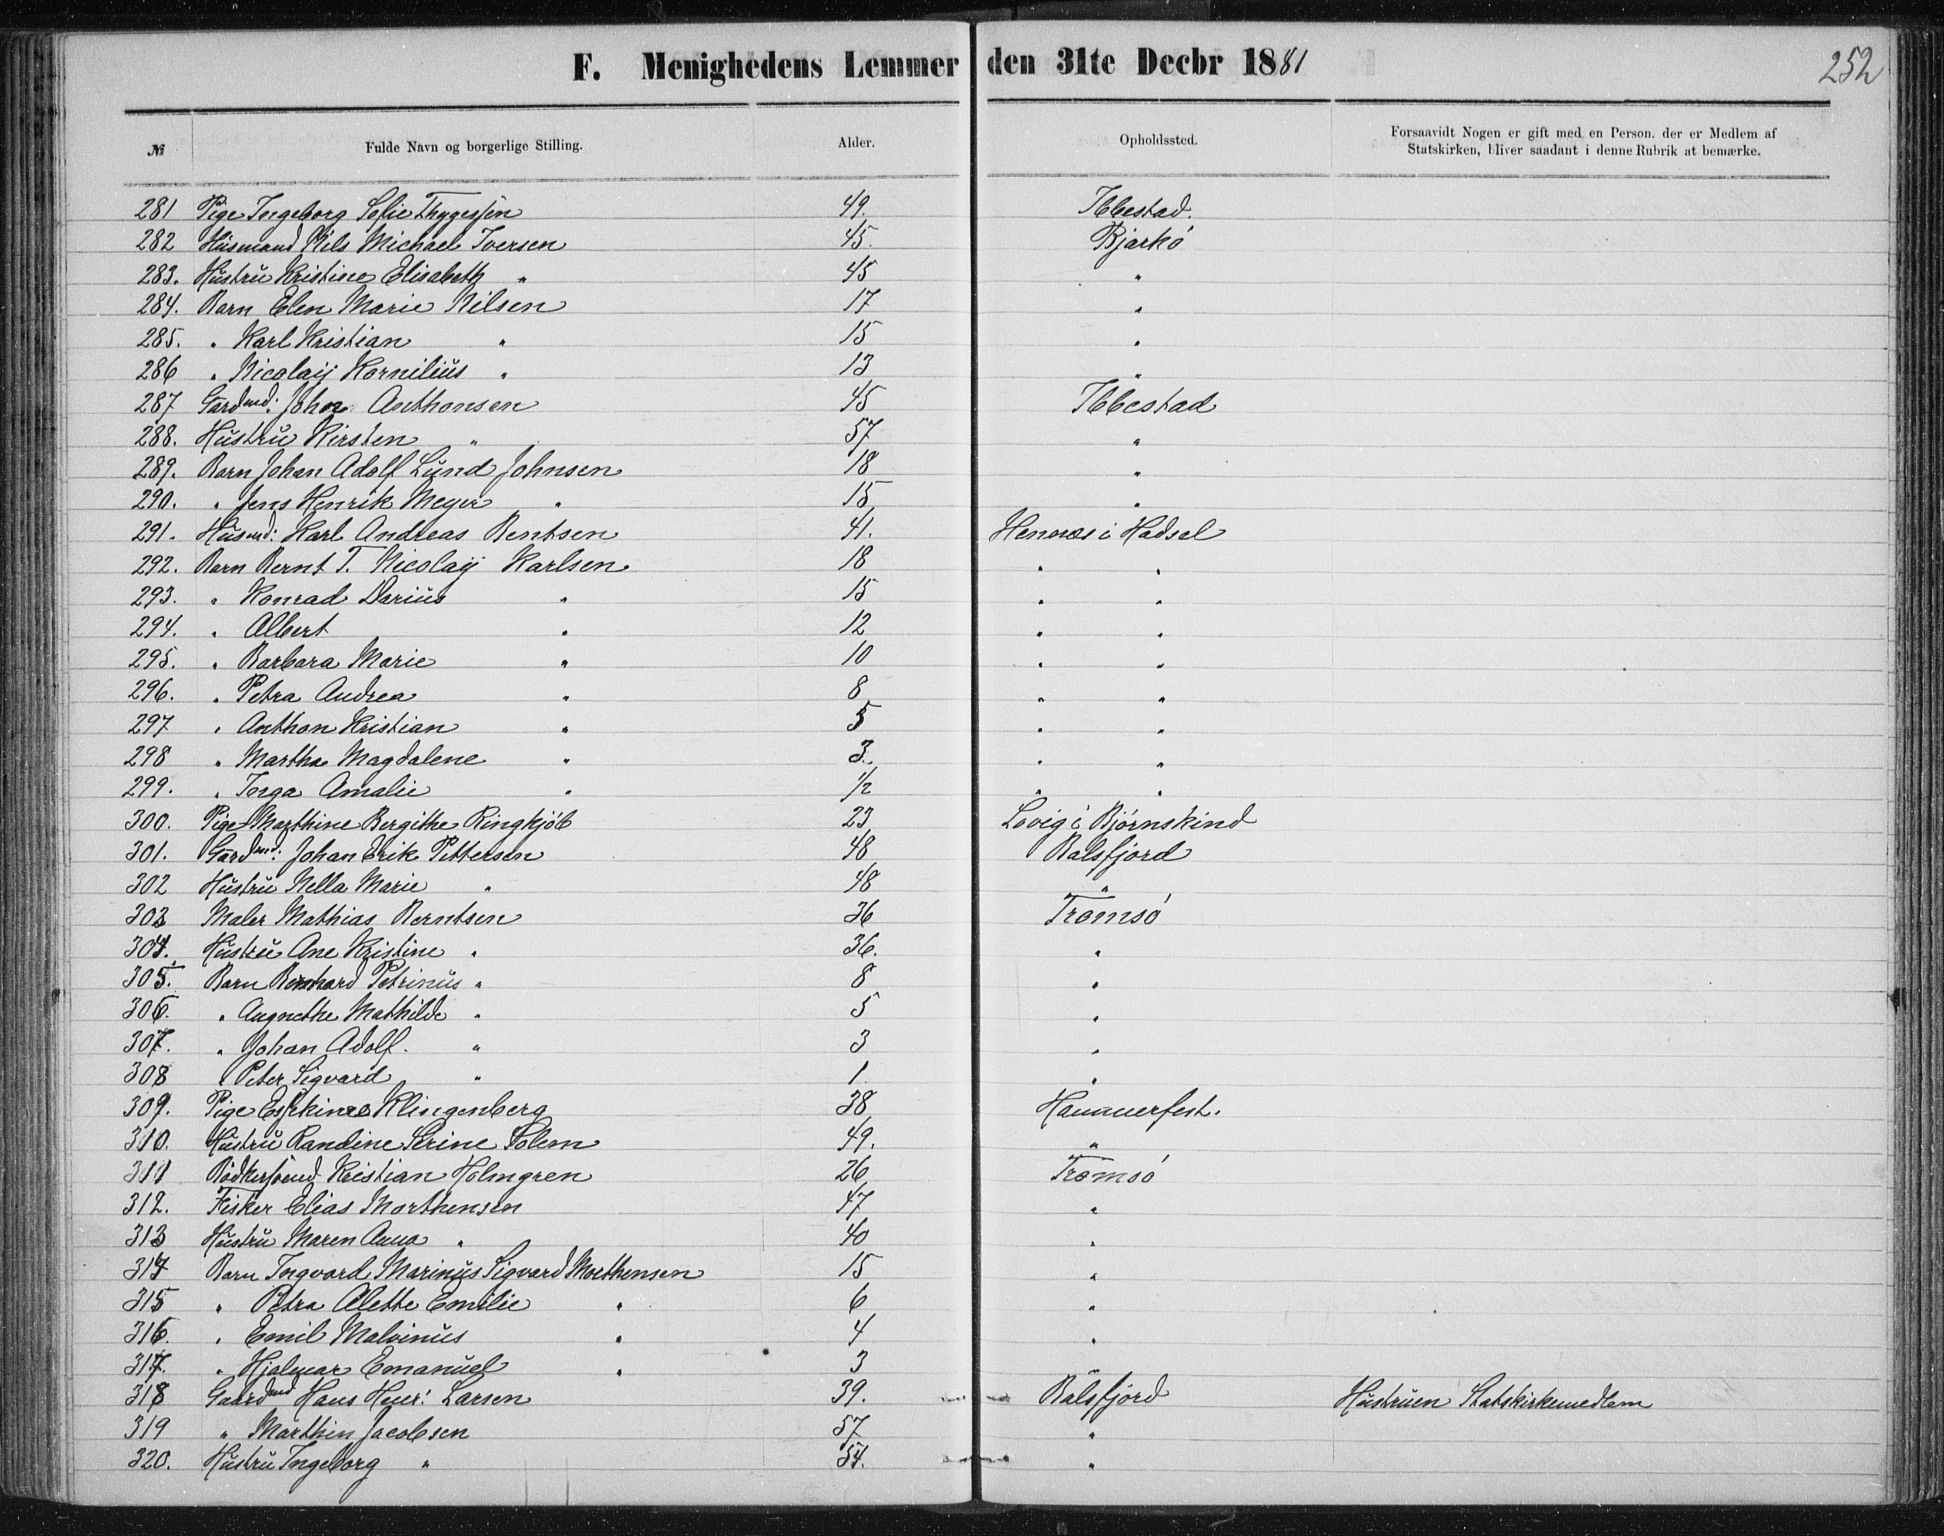 F. Menighedens Lemmer den 31te Decbr 1881
252
№ Fulde Navn og borgerlige Stilling. Alder. Opholdssted. Forsaavidt Nogen er gift med en Person, der er Medlem af
Statskirken, bliver saadant i denne Rubrik at bemærke.
281 Pige Ingeborg Sofie Thygessen 49. Ibbestad.
282 Husmand Nils Michael Iversen 45. Bjarkö
283. Hustru Kristine Elisabeth " 45 "
284. Barn Elen Marie Nilsen 17 "
285. " Karl Kristian " 15 "
286 " Nicolaij Kornilius " 13 "
287 Gardmd: John Anthonsen 45 Ibbestad
288. Hustru Kirsten " 57 "
289. Barn Johan Adolf Lund Johnsen 18 "
290. " Jens Henrik Meyer " 15 "
291. Husmd: Karl Andreas Bentsen 41. Hennes i Hadsel
292. Barn Bernt T. Nicolaij Karlsen 18 " "
293. " Konrad Darius " 15 " "
294. " Albert " 12 " "
295. " Barbara Marie " 10 " "
296. " Petra Andrea " 8 " "
297 " Anthon Kristian " 5 " "
298 " Martha Magdalene " 3. " "
299. " Inga Amalie " 1/2 " "
300. Pige Marthine Bergithe Ringkjöb 23 Lovig i Bjørnskind
301. Gardmd: Johan Erik Pettersen 48 Balsfjord
302 Hustru Nella Marie " 48 "
303 Maler Mathias Berntsen 36 Tromsö
304. Hustru Ane Kristine " 36. "
305. Barn Bernhard Petrinus " 8 "
306. " Augnethe Mathilde " 5 "
307. " Johan Adolf. " 3 "
308 " Peter Sigvard " 1 "
309. Pige Klingenberg 38 Hammerfest.
310. Hustru Randine Serine Solem 49. "
311 Bödkersvend Kristian Holmgren 26 Tromsö
312. Fisker Elias Morthensen 47 "
313 Hustru Maren Anna " 40 "
314 Barn Ingvard Marinus Sigvard Morthensen 15 "
315 " Petra Alette Emilie " 6 "
316. " Emil Malvinus " 4 "
317. " Hjalmar Emanuel " 3 "
318 Gaardmd Hans Henr: Larsen 39. Balsfjord Hustruen Statskirkemedlem
319 " Marthin Jacobsen 57 "
320. Hustru Ingeborg " 54. "